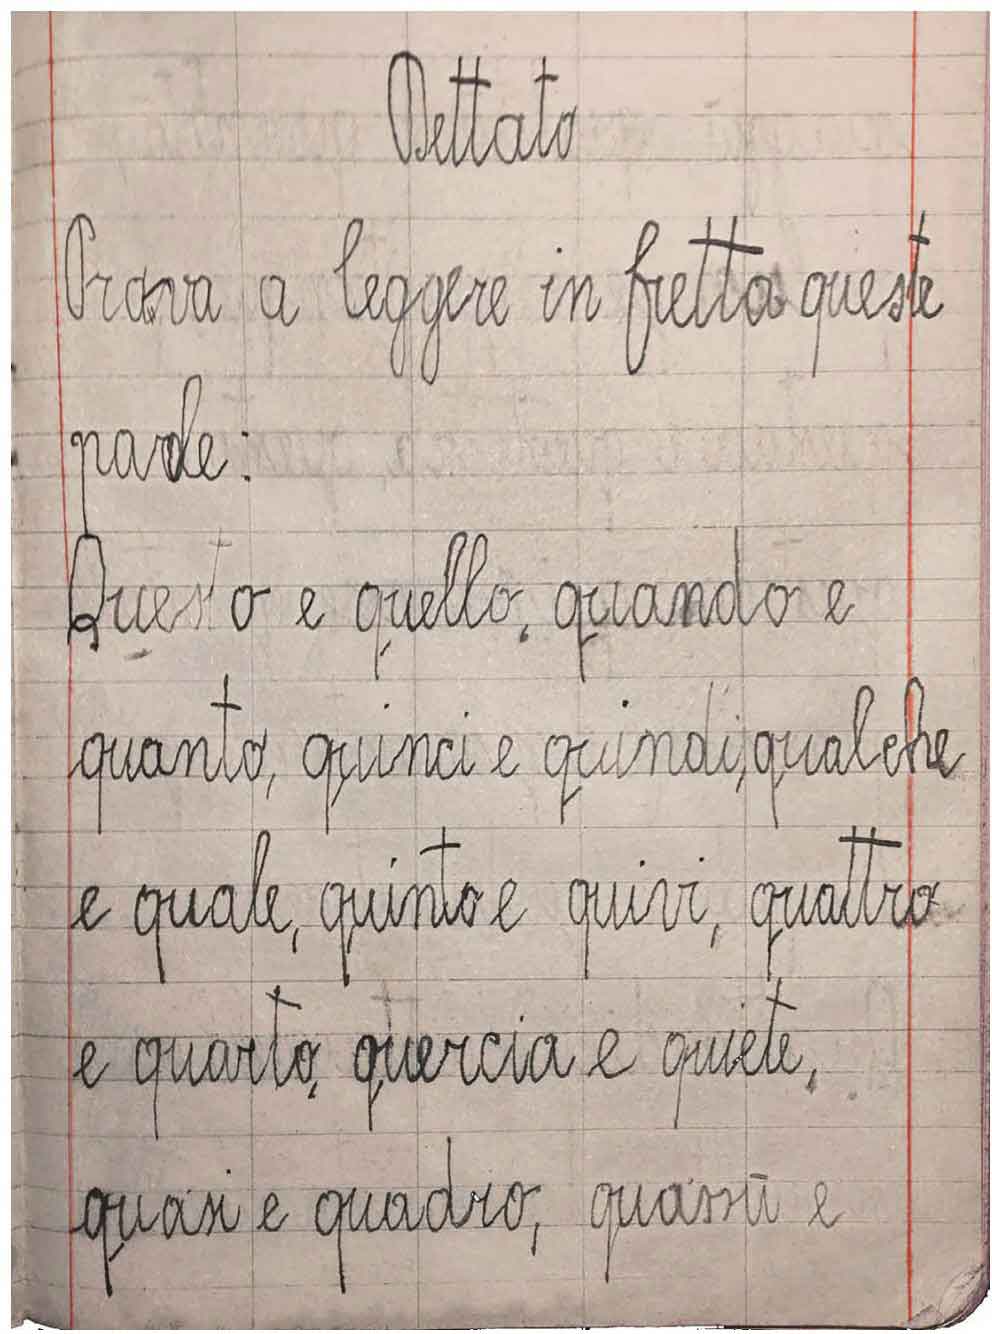 Dettato
Prova a leggere in fretta queste
parole:
Questo e quello, quando e
quanto, quinci e quindi, qualche
e quale, quinto e quivi, quattro
e quarto, quercia e quiete,
quasi e quadro, quassù e